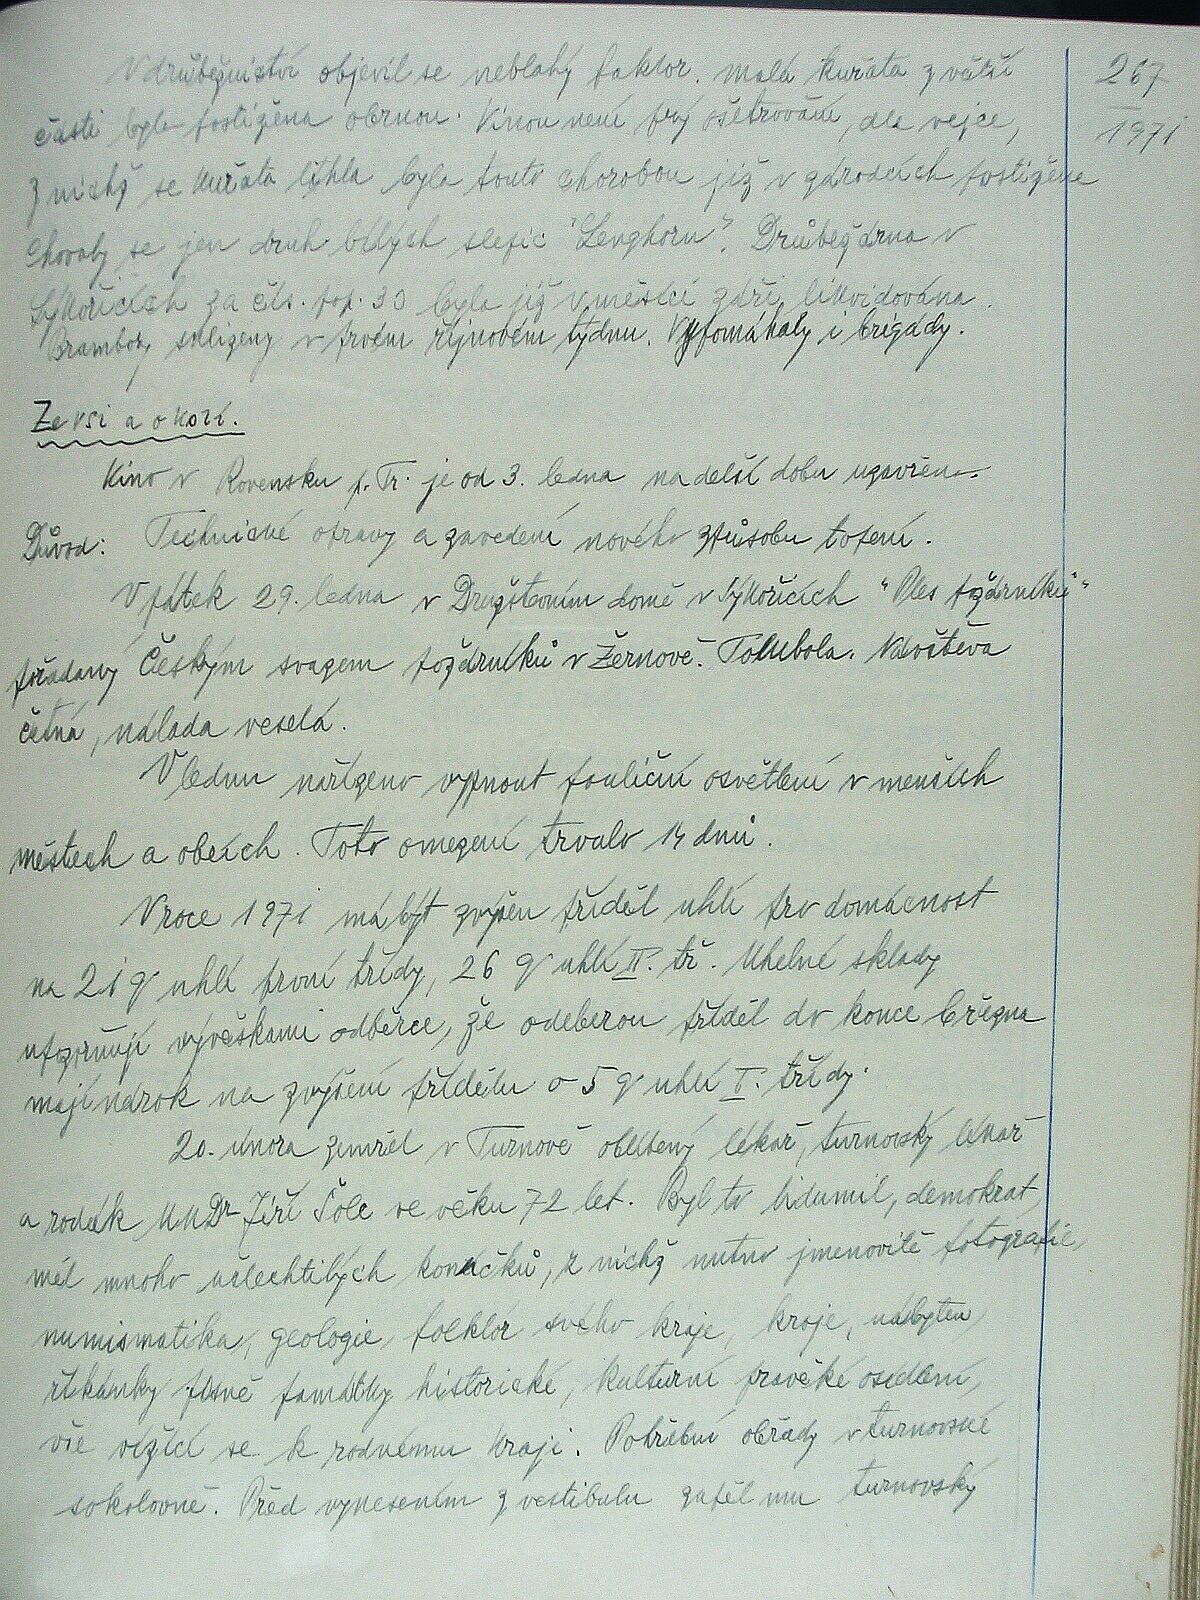 267
1971
V drůbežnictví objevil se neblahý faktor. Malá kuřata z větší
části byla postižena obrnou. Vinou není prý ošetřování, ale vejce,
z nichž se kuřata líhla byla touto chorobou již v zárodcích postižena
Chovaly se jen druh bílých slepic "Lenghorn". Drůbežárna v
Sýkořicích za čís. pop. 30 byla již v měsíci září likvidována.
Brambory sklizeny v prvém říjnovém týdnu. Vypomáhaly i brigády.
Ze vsi a okolí.
Kino v Rovensku p. Tr. je od 3. ledna na delší dobu uzavřeno.
Důvod: Technické opravy a zavedení nového způsobu topení.
V pátek 29. ledna v Družstevním domě v Sýkořicích "Ples požárníků"
pořádaný Českým svazem požárníků v Žernově. Tombola. Návštěva
četná, nálada veselá.
V lednu nařízeno vypnout pouliční osvětlení v menších
městech a obcích. Toto omezení trvalo 14 dnů.
V roce 1971 má být zvýšen příděl uhlí pro domácnost
na 21 q uhlí první třídy, 26 q uhlí II. tř. Uhelné sklady
upozorňují vývěskami odběrce, že odeberou příděl do konce března
mají nárok na zvýšení přídělu o 5 q uhlí I. třídy.
20. února zemřel v Turnově oblíbený lékař, turnovský lékař
a rodák MUDr Jiří Šolc ve věku 72 let. Byl to lidumil, demokrat,
měl mnoho ušlechtilých koníčků, z nichž nutno jmenovitě fotografie,
numismatika, geologie, folklór svého kraje, kroje, nábytek,
říkánky, písně památky historické, kulturní pravěké osídlení,
vše vížící se k rodnému kraji. Pohřební obřady v turnovské
sokolovně. Před vynesením z vestibulu zapěl mu turnovský